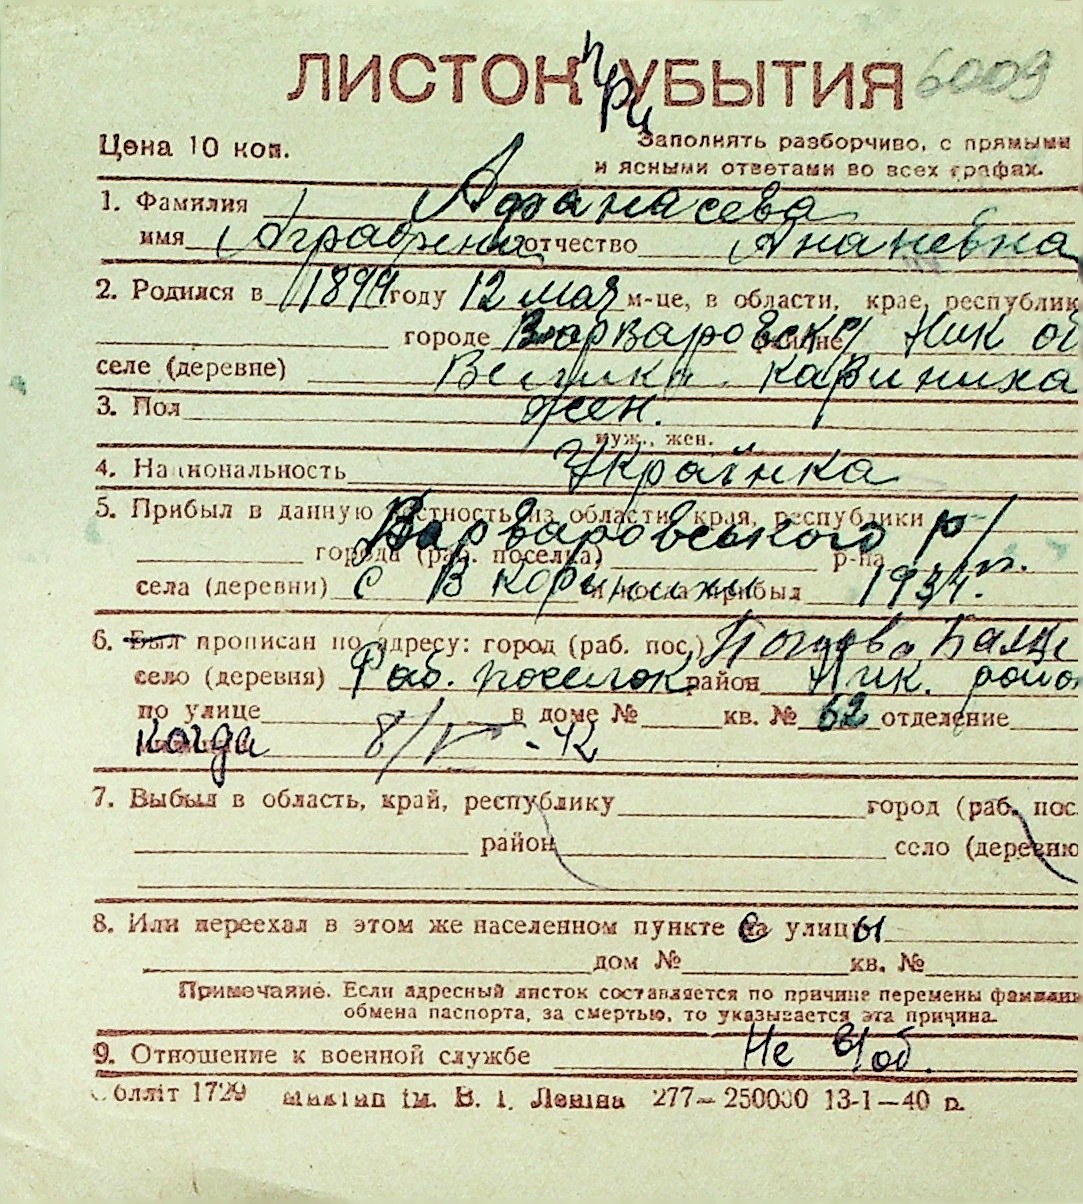 ЛИСТОК при УБЫТИЯ 6009
Цена 10 коп.
Заполнять разборчиво, с прямыми
и ясными ответами во всех графах.
1. Фамилия Афанасева
имя Аграфена отчество Ананевна
2. Родился в 1899 году 12 мая м-це, в области, крае, республик
городе Варваровск р/ районе Ник об
селе (деревне) Велика Кариниха
3. Пол жен.
муж., жен.
4. Национальность Українка
5. Прибыл в данную местность из области, края, республики
Варваровського р/н.
города (раб. поселка) р-на
села (деревни) с В Кориники и когда прибыл 1934.
6. Был прописан по адресу: город (раб. пос.) Попова Балка
село (деревня) Раб. поселок район Ник. райо
по улице в доме № кв. № 62 отделение
Когда 8/V - 42
7. Выбыл в область, край, республику город (раб. пос.
район село (деревню
8. Или переехал в этом же населенном пункте с улицы
дом № кв. №
Примечание. Если адресный листок составляется по причине перемены фамилии
обмена паспорта, за смертью, то указывается эта причина.
9. Отношение к военной службе Не в/об.
блліт 1729 ім. В. І. Леніна 277—250000 13-1—40 р.